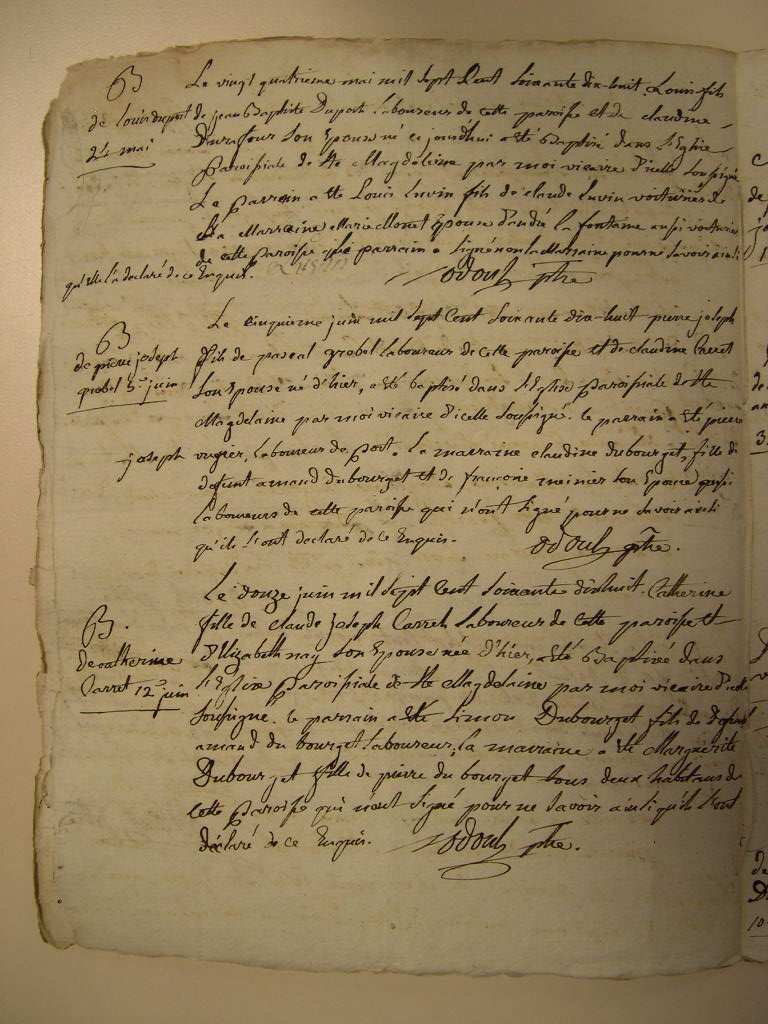 B
de Louis duport
24 mai
Le vingt quatrieme mai mil sept Cent soixante dix-huit Louis fils
de jean Baptiste Duport laboureur de cette paroisse et de claudine
Durafour son Epouse né ce jourdhui a été Baptisé dans l'Eglise
Paroissiale de Ste Magdeleine par moi vicaire d'icelle soussigné
Le parrain a été Louis fils de claude voiturier de
La Marraine Marie Monet Epouse d'andré la fontaine aussi voiturier
de cette paroisse le parrain a signé non la Marraine pour ne savoir ainsi
qu'elle l'a déclaré de ce Enquis.
odoul ptre
B
de pierre joseph
grobel 5e juin
Le cinquieme juin mil sept Cent soixante dix-huit pierre joseph
fils de pascal grobel laboureur de cette paroisse et de claudine
son Epouse né d'hier, a été baptisé dans l'Eglise paroissiale de Ste
Magdelaine par moi vicaire d'icelle soussigné. le parrain a été pierre
joseph laboureur de La marraine claudine dubourget, fille de
defunt amand dubourget et de françoise meinier son Epouse aussi
laboureurs de cette paroisse qui n'ont signé pour ne savoir ainsi
qu'ils l'ont declaré de ce Enquis.
odoul ptre.
B.
de catherine
Carret 12e juin
Le douze juin mil sept Cent soixante dixhuit. Catherine
fille de claude joseph Carret laboureur de cette paroisse et
d'Elizabeth nay son Epouse née d'hier, a été Baptisée dans
l'Eglise Paroissiale de Ste Magdelaine par moi vicaire d'icelle
soussigné. le parrain a été simon Dubourget fils de defunt
amand du bourget laboureur, la marraine a été Marguerite
Dubourget fille de pierre du bourget tous deux habitans de
cette Paroisse qui n'ont signé pour ne savoir ainsi qu'ils l'ont
déclaré de ce Enquis.
odoul ptre.